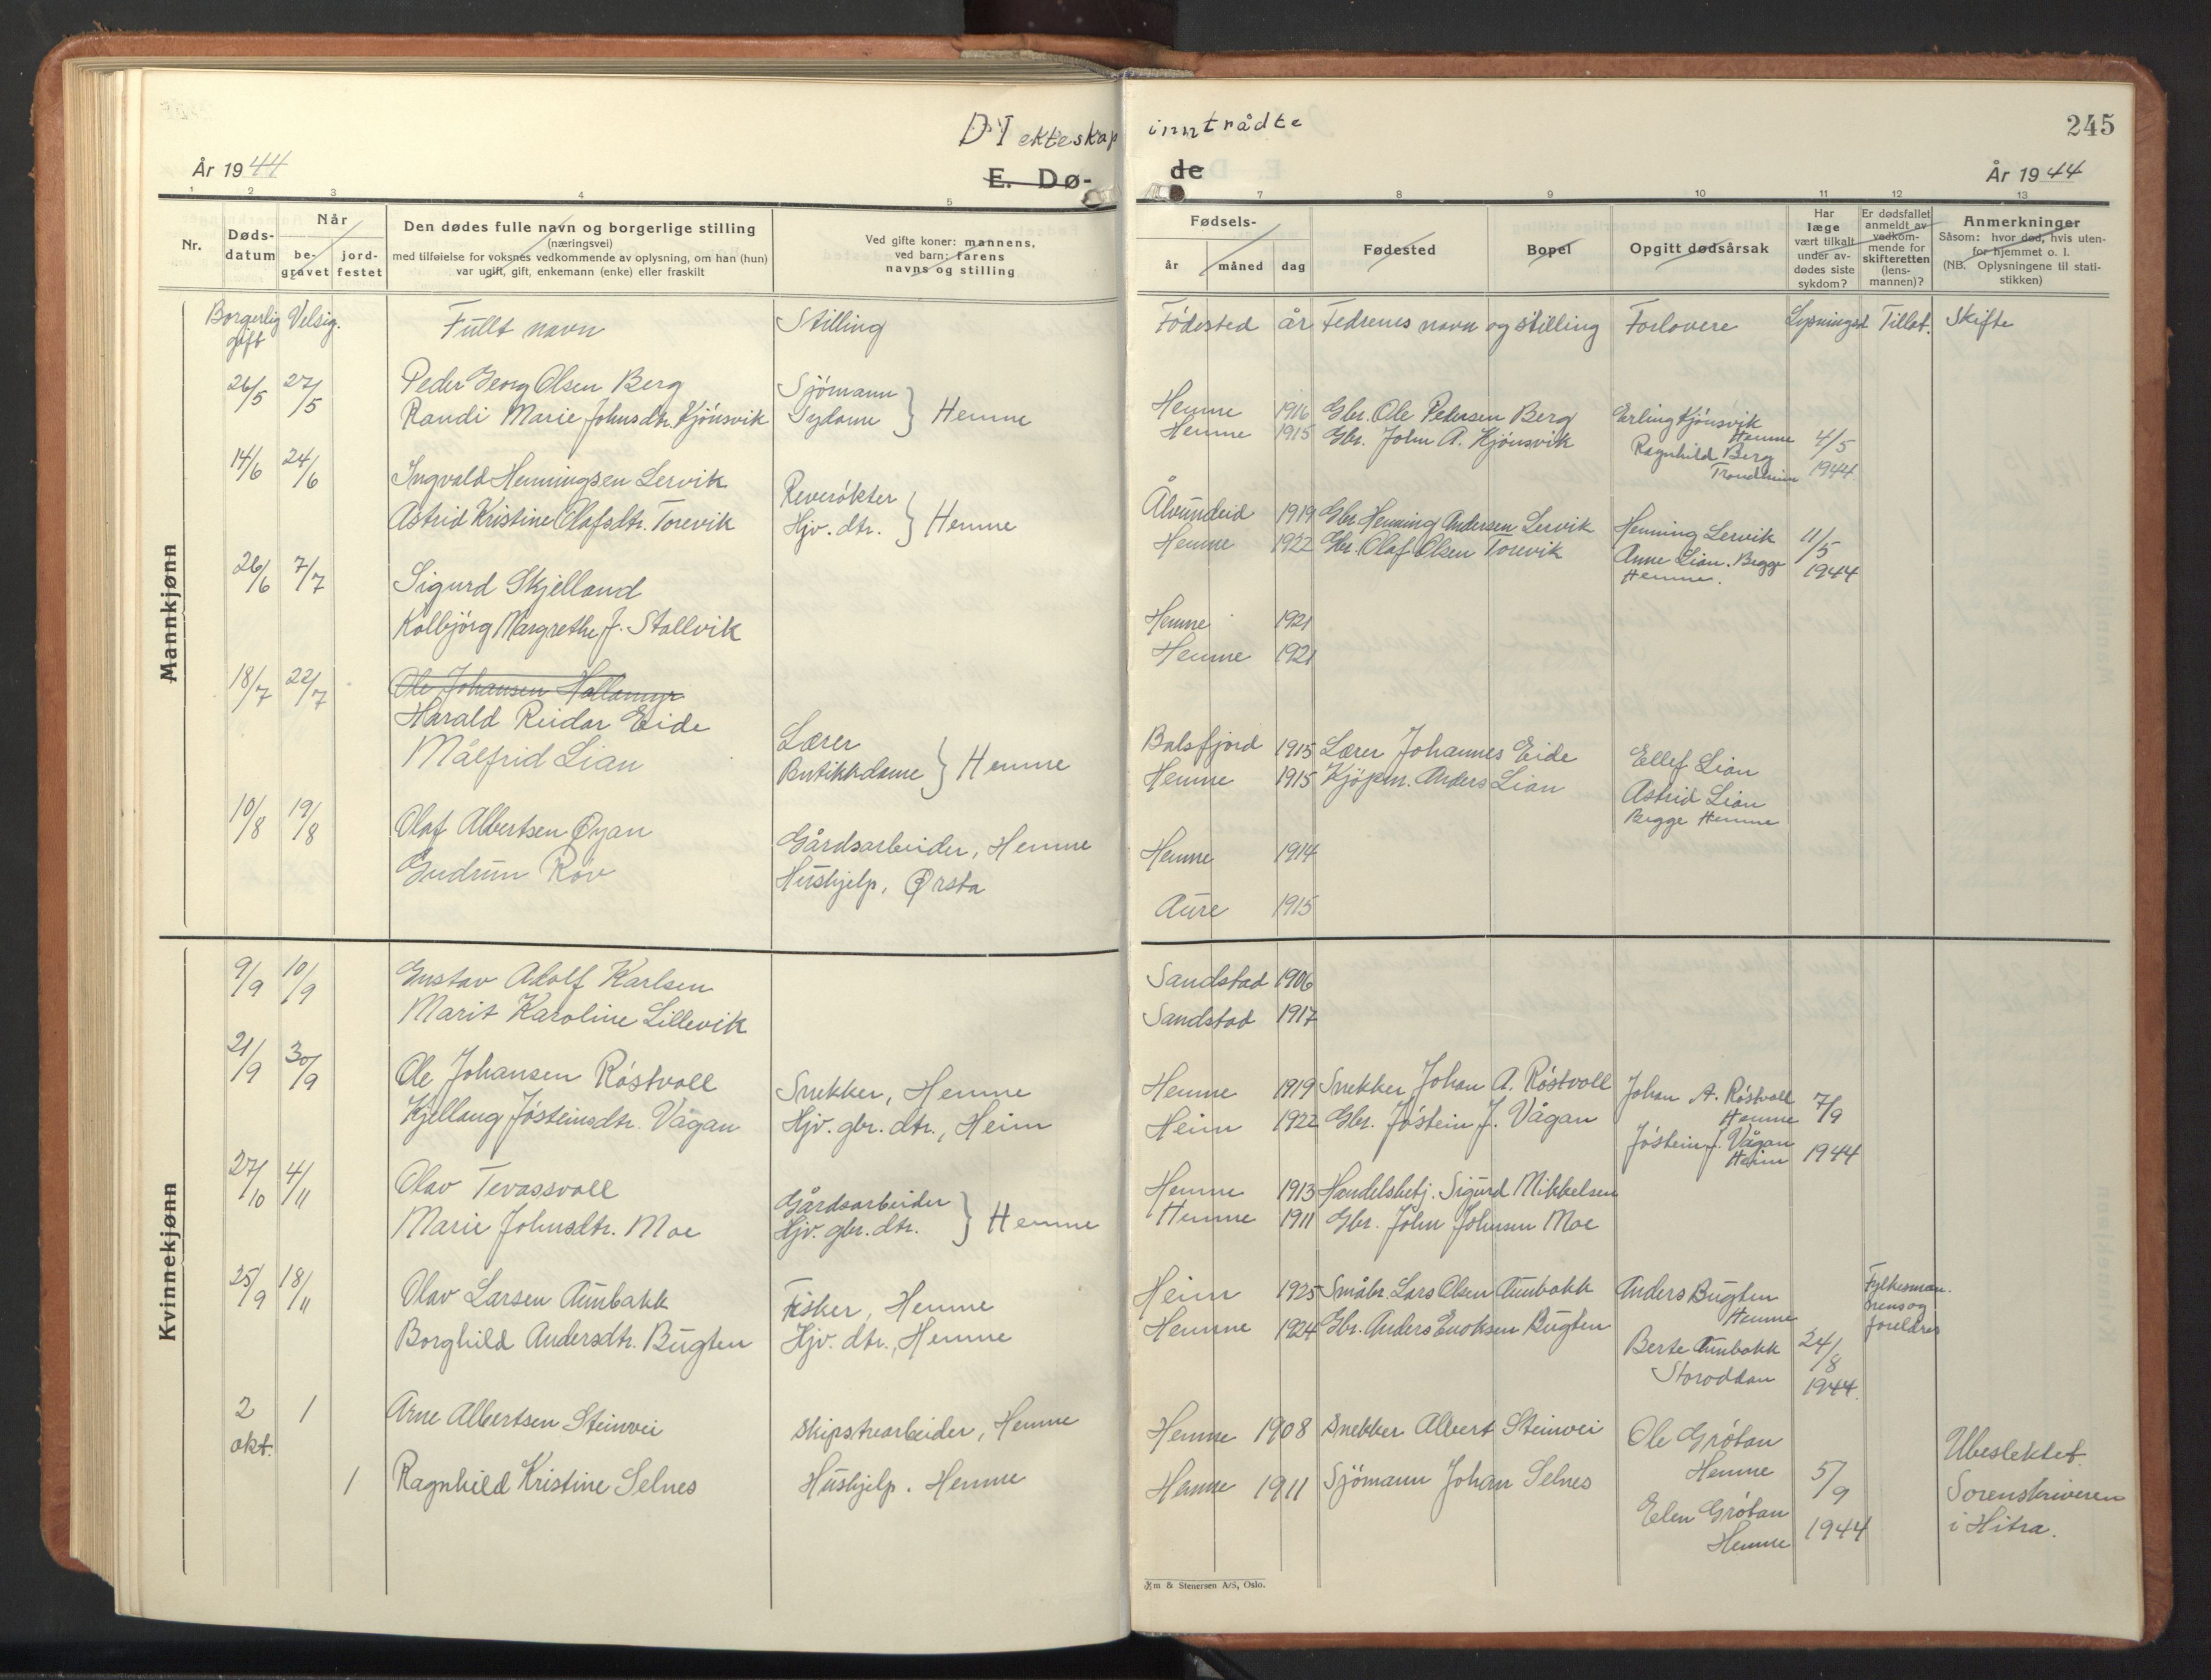 245
D I ekteskap inntrådte
År 1944
E. Dø-
de
År 1944
1 2 3 4 5 7 8 9 10 11 12 13
Nr.
Døds-
datum
Når
be-
gravet
jord-
festet
Den dødes fulle navn og borgerlige stilling
(næringsvei)
med tilføielse for voksnes vedkommende av oplysning, om han (hun)
var ugift, gift, enkemann (enke) eller fraskilt
Ved gifte koner: mannens,
ved barn: farens
navns og stilling
Fødsels-
år måned dag
Fødested
Bopel
Opgitt dødsårsak
Har
læge
vært tilkalt
under av-
dødes siste
sykdom?
Er dødsfallet
anmeldt av
vedkom-
mende for
skifteretten
(lens-
mannen)?
Anmerkninger
Såsom: hvor død, hvis uten-
for hjemmet o. l.
(NB. Oplysningene til stati-
stikken)
Mannkjønn
Borgerlig gift Velsig. Fullt navn Stilling Födested år Fedrenes navn og stilling Forlovere Lysningsd Tillat. Skifte
26/5 27/5 Peder Georg Olsen Berg Sjömann
Randi Marie Johnsdtr. Kjönsvik Sydame } Hemne
Hemne 1916 Gbr. Ole Pedersen Berg Erling Kjönsvik
Hemne
Hemne 1915 Gbr. John A. Kjönsvik Ragnhild Berg
Trondheim
4/5
1944
14/6 24/6 Ingvald Henningsen Lervik Reverökter
Astrid Kristine Olafsdtr. Torevik Hjv. dtr. } Hemne
Ålvundeid 1919 Gbr. Henning Andersen Lervik Henning Lervik 11/5
Hemne 1922 Gbr. Olaf Olsen Torevik Anne Lian. Begge
Hemne. 1944
26/6 7/7 Sigurd Skjelland
Kolbjörg Margrethe J. Stallvik
Hemne 1921
Hemne 1921
18/7 22/7 Ole Johansen Hollamyr
Harald Reidar Eide Lærer
Målfrid Lian Butikkdame } Hemne
Balsfjord 1915 Lærer Johannes Eide Ellef Lian
Hemne 1915 Kjöpm. Anders Lian Astrid Lian
Begge Hemne
10/8 19/8 Olaf Albertsen Øyan Gårdsarbeider, Hemne
Gudrun Röv Hushjelp, Ørsta
Hemne 1914
Aure 1915
Kvinnekjønn
9/9 10/9 Gustav Adolf Karlsen
Marit Karoline Lillevik
Sandstad 1906
Sandstad 1917
21/9 30/9 Ole Johansen Röstvoll Snekker, Hemne
Kjellaug Jösteinsdtr. Vågan Hjv. gbr. dtr., Heim
Hemne 1919 Snekker Johan A. Röstvoll Johan A. Röstvoll
Hemne 7/9
Heim 1922 Gbr. Jöstein J. Vågan Jöstein J. Vågan
Heim 1944
27/10 4/11 Olav Tevassvoll Gårdsarbeider
Marie Johnsdtr. Moe Hjv. gbr. dtr. } Hemne
Hemne 1913 Handelsbetj. Sigurd Mikkelsen
Hemne 1911 Gbr. John Johnsen Moe
25/9 18/11 Olav Larsen Aunbakk Fisker, Hemne
Borghild Andersdtr. Bugten Hjv. dtr., Hemne
Heim 1925 Småbr. Lars Olsen Aunbakk Anders Bugten
Hemne
Hemne 1924 Gbr. Anders Enoksen Bugten Berte Aunbakk
Storoddan
24/8
1944.
Fylkesman-
nens og
foreldres
2 okt. 1 Arne Albertsen Steinvei Skipstrearbeider, Hemne
1 Ragnhild Kristine Selnes Hushjelp. Hemne
Hemne 1908 Snekker Albert Steinvei Ole Grötan
Hemne
Hemne 1911 Sjömann Johan Selnes Elen Grötan
Hemne
5/9
1944
Ubeslektet.
Sorenskriveren
i Hitra.
m & Stenersen A/S, Oslo.